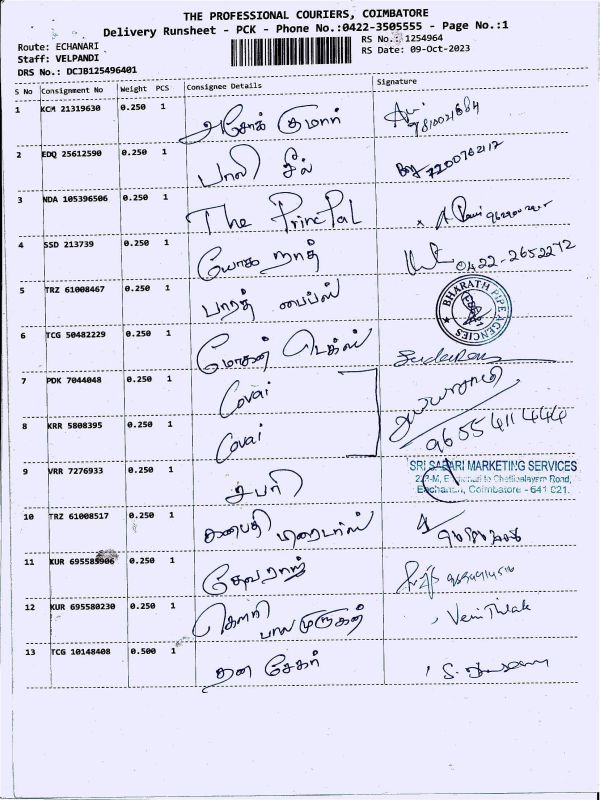 THE PROFESSIONAL COURIERS, COIMBATORE
Delivery Runsheet - PCK - Phone No.:0422-3505555 - Page No.:1
Route: ECHANARI
RS No.: 1254964
Staff: VELPANDI
RS Date: 09-Oct-2023
DRS No.: DCJB125496401
S No Consignment No Weight PCS Consignee Details Signature
1 KCM 21319630 0.250 1 அசோக் குமார்
2 EDQ 25612590 0.250 1 பாலி சீல் 7200762117
3 NDA 105396506 0.250 1 The PrincPal
4 SSD 213739 0.250 1 யோக நாத் 0422-2652272
5 TRZ 61008467 0.250 1 பாரத் பைப்ஸ் BHARATH PIPE AGENCIES
6 TCG 50482229 0.250 1 மோகன் டெக்ஸ்
7 PDK 7044048 0.250 1 Covai
8 KRR 5808395 0.250 1 Covai 9655411444
9 VRR 7276933 0.250 1 சபரி
SRI SABARI MARKETING SERVICES
Chettipalayam Road,
Eachanari, Coimbatore - 641 021.
10 TRZ 61008517 0.250 1 கணபதி
11 KUR 695589906 0.250 1 தேவராஜ்
12 KUR 695580230 0.250 1 கௌரி
பாலமுருகன்
13 TCG 10148408 0.500 1 தன சேகர்